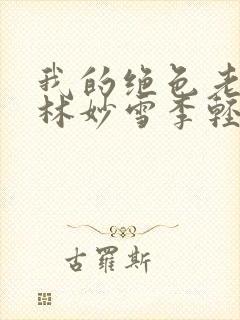 我的绝色老
林妙雪季轻
古羅斯